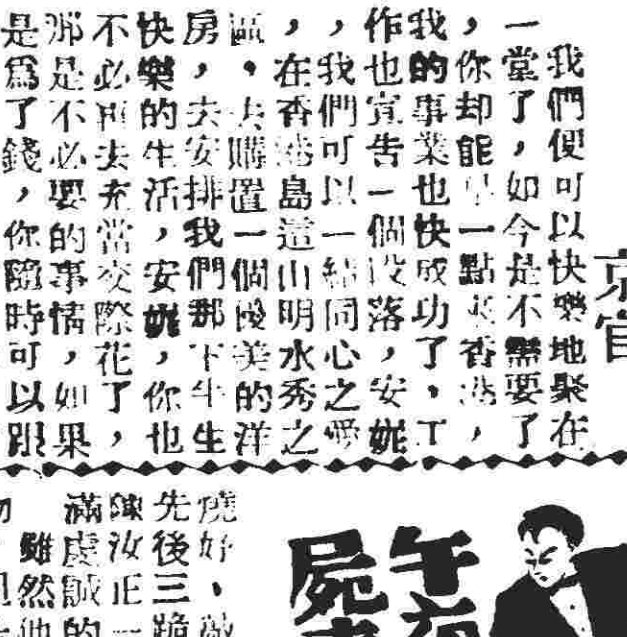 我們便可以快樂地聚在
一堂了，如今是不需要了
，你却能早一點來香港，
我的事業也快成功了，工
作也宣告一個段落，安妮
，我們可以一結同心之愛
，在香港島這山明水秀之
區，去購置一個優美的洋
房，去安排我們那下半生
快樂的生活，安妮，你也
不必再去充當交際花了，
那是不必要的事情，如果
是爲了錢，你隨時可以跟
京官
午夜
屍
燒好，
先後三跪
陳汝正一
滿虔誠的
雖然他